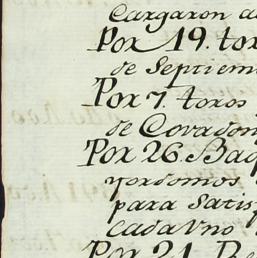 Cargaron a
Por 19. tor
de Septiem
Por 7. toros
de Covadon
Por 26. Baq
yordomos
para Satis
Cada Vno
Por 21. Be